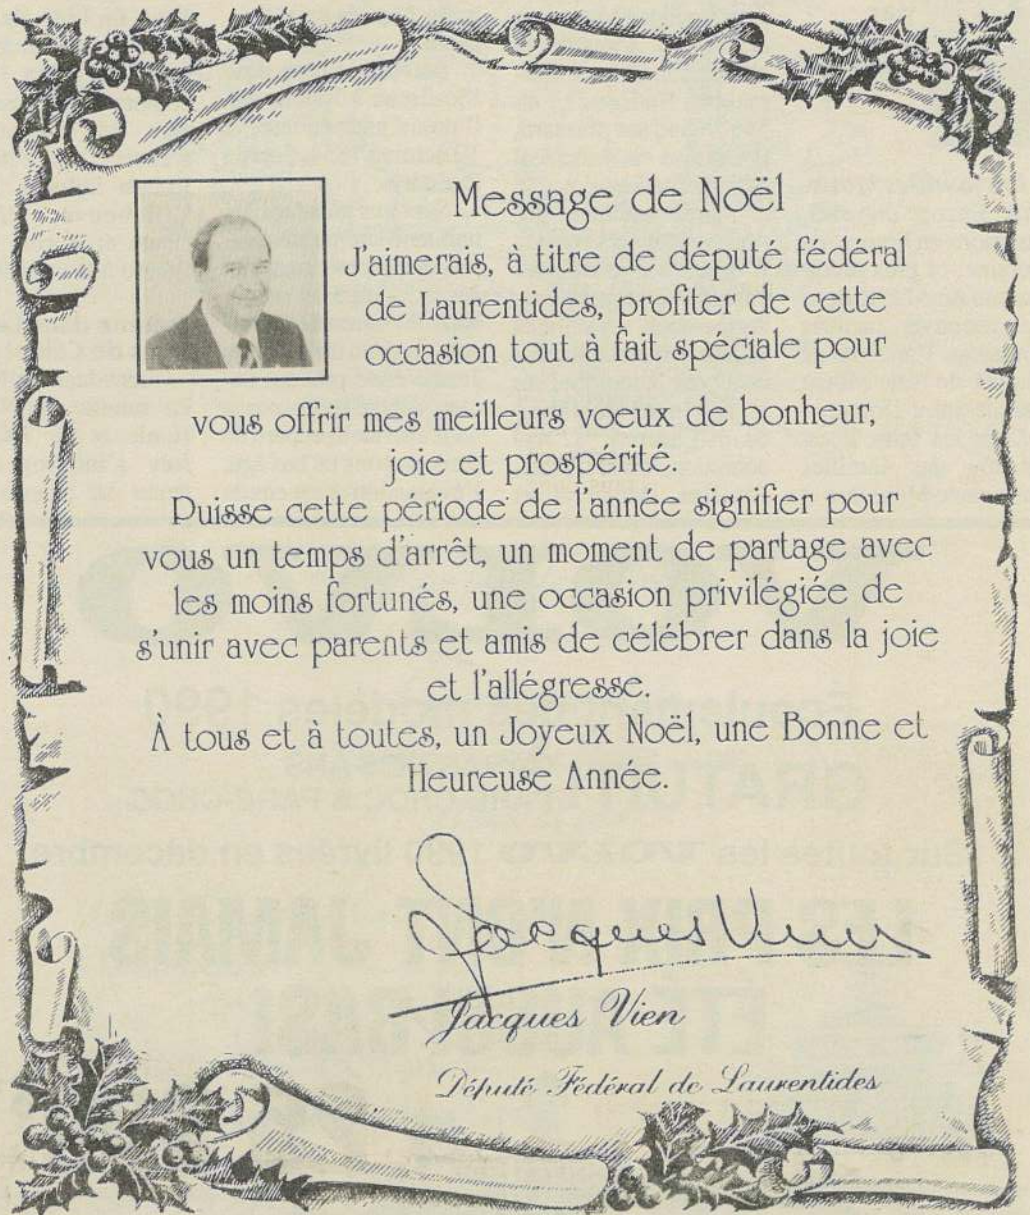 Message de Noël
J'aimerais, à titre de député fédéral
de Laurentides, profiter de cette
occasion tout à fait spéciale pour
vous offrir mes meilleurs voeux de bonheur,
joie et prospérité.
Puisse cette période de l'année signifier pour
vous un temps d'arrêt, un moment de partage avec
les moins fortunés, une occasion privilégiée de
s'unir avec parents et amis de célébrer dans la joie
et l'allégresse.
À tous et à toutes, un Joyeux Noël, une Bonne et
Heureuse Année.
Jacques Vien
Jacques Vien
Député Fédéral de Laurentides